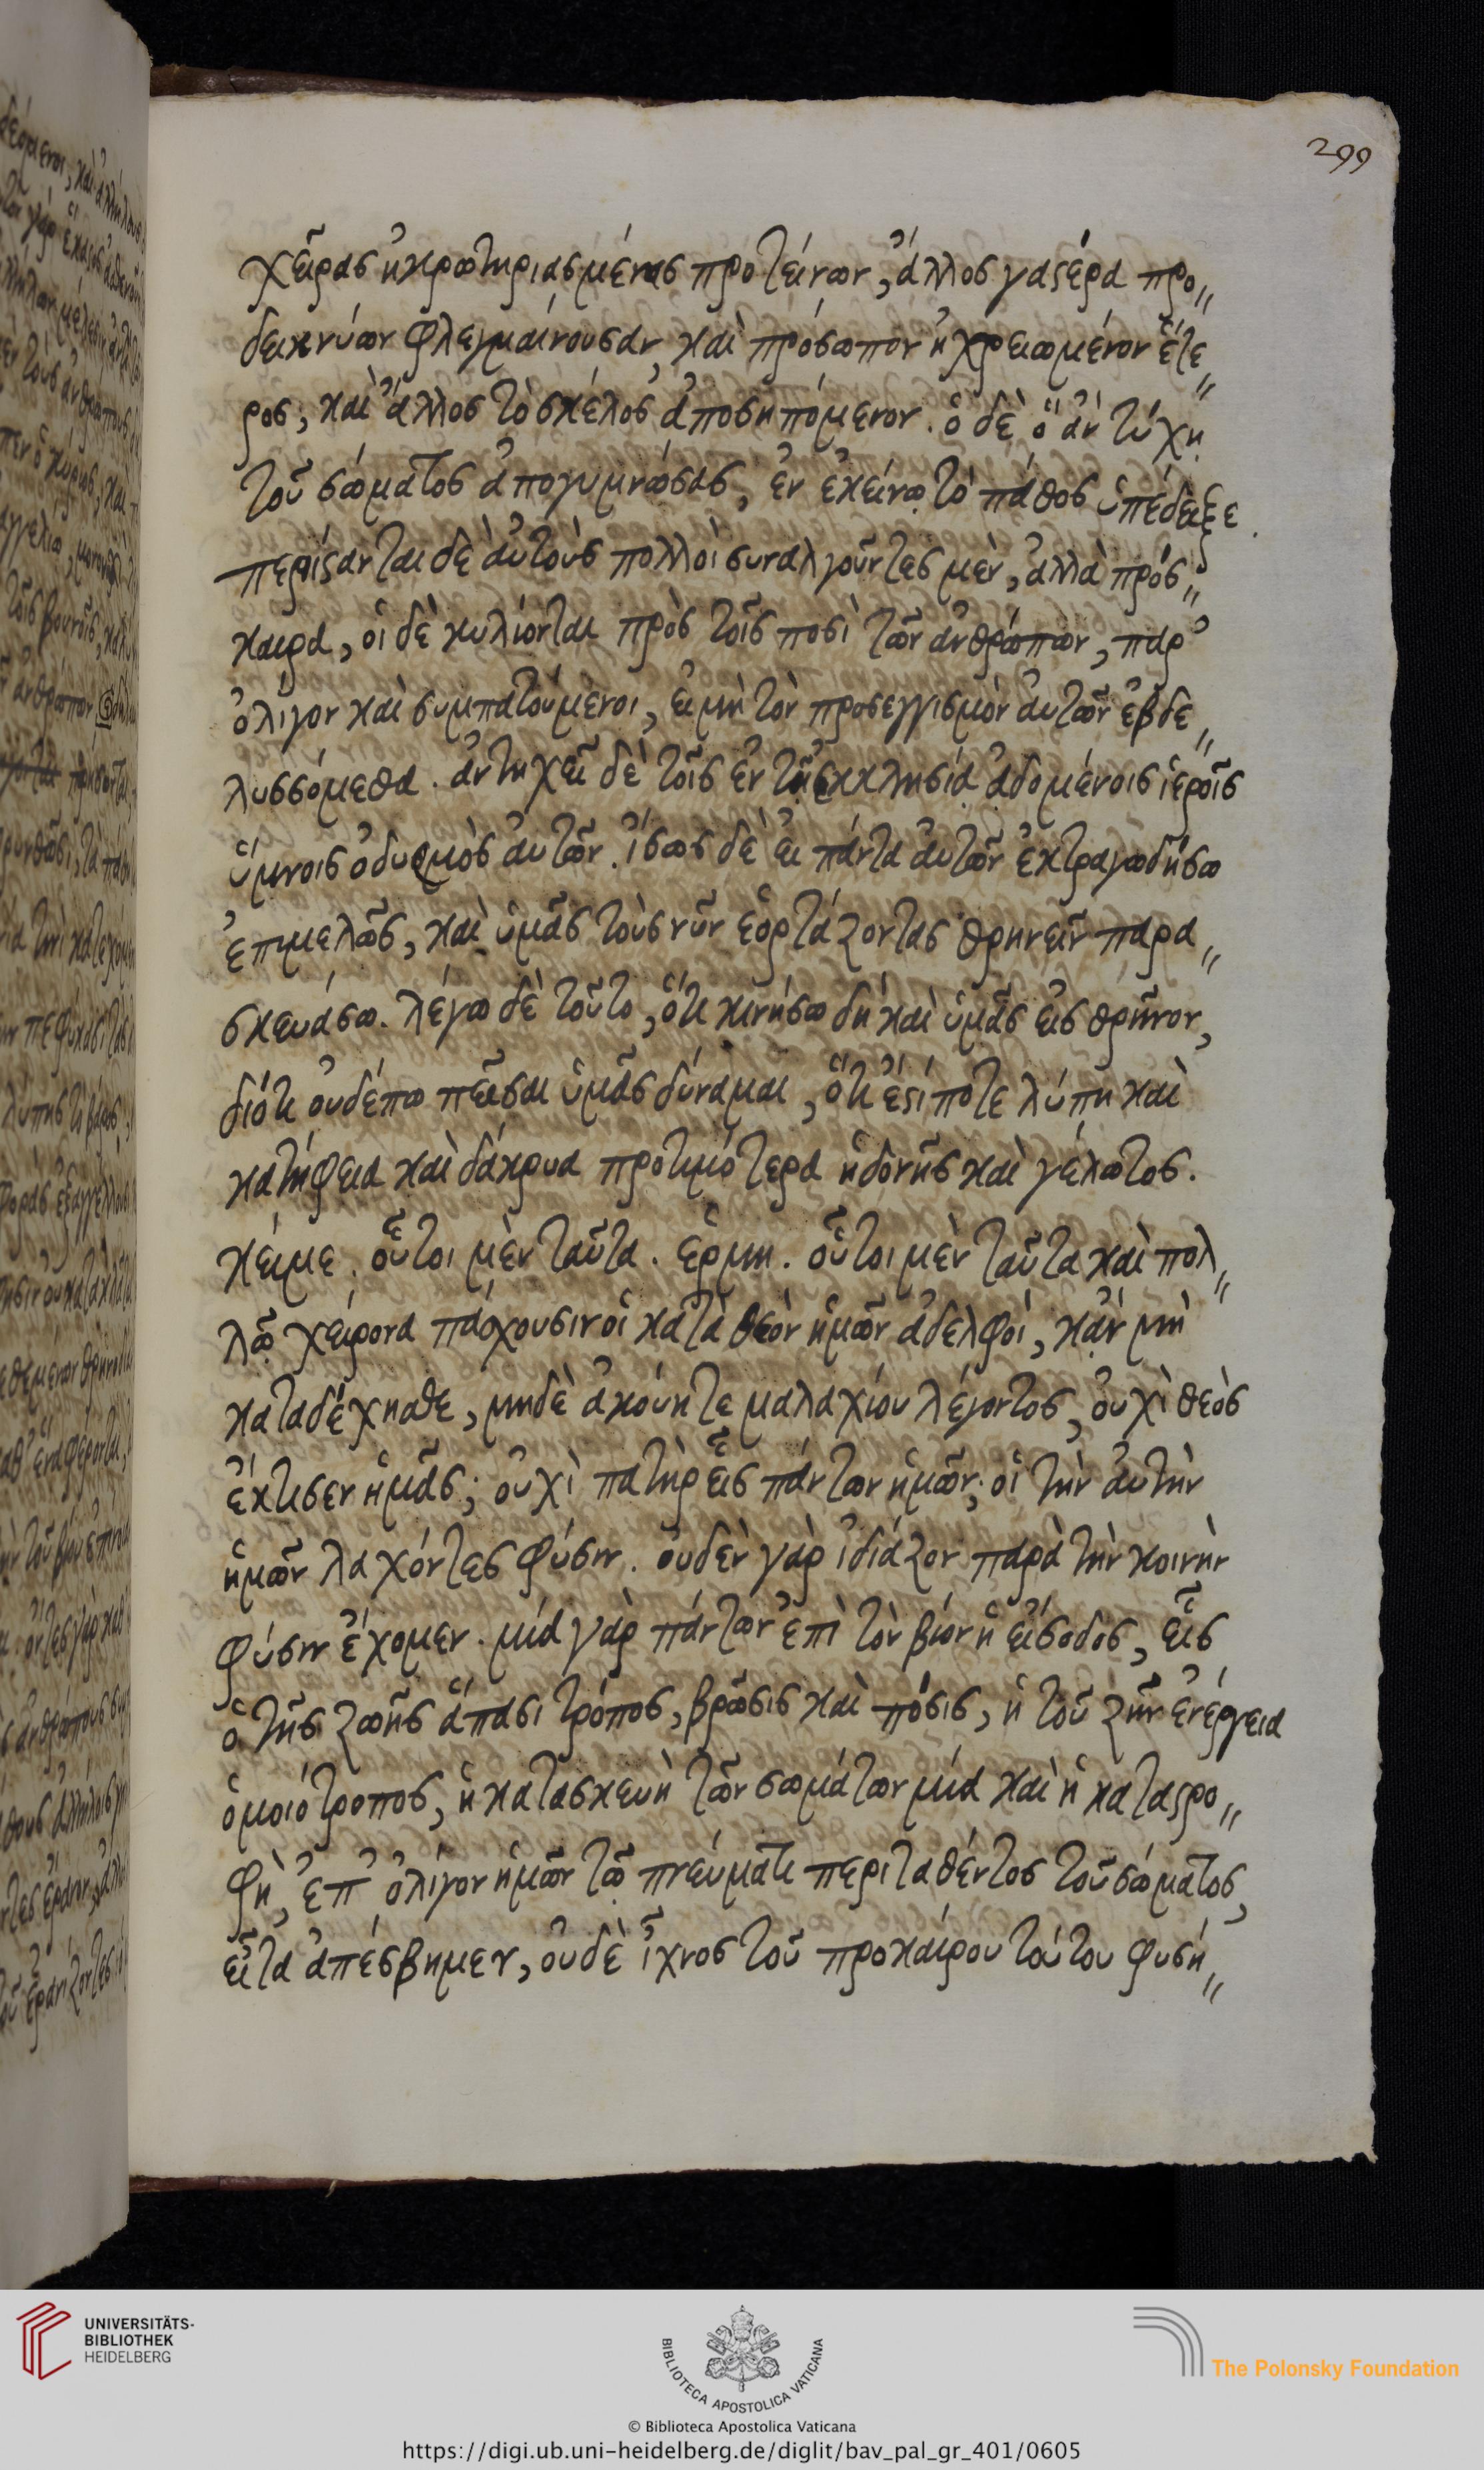 299
χεῖρας ἠκρωτηριασμένας προτείνων, ἄλλος γαστέρα προ
δεικνύων φλεγμαίνουσαν, καὶ πρόσωπον ἠχρειωμένον ἕτε
ρος, καὶ ἄλλος τὸ σκέλος ἀποσηπόμενον. ὁ δὲ ὃ ἂν τύχῃ
τοῦ σώματος ἀπογυμνώσας, ἐν ἐκείνῳ τὸ πάθος ὑπέδειξε.
περιίστανται δὲ αὐτοὺς πολλοὶ συναλγοῦντες μὲν, ἀλλὰ πρόσ
καιρα, οἱ δὲ κυλίονται πρὸς τοῖς ποσὶ τῶν ἀνθρώπων, παρ'
ὀλίγον καὶ συμπατούμενοι, εἰ μὴ τὸν προσεγγισμὸν αὐτῶν ἐβδε
λυσσόμεθα. ἀντηχεῖ δὲ τοῖς ἐν τῇ ἐκκλησίᾳ ᾀδομένοις ἱεροῖς
ὕμνοις ὀδυρμὸς αὐτῶν. ἴσως δὲ εἰ πάντα αὐτῶν ἐκτραγωδήσω
ἐπιμελῶς, καὶ ὑμᾶς τοὺς νῦν ἑορτάζοντας θρηνεῖν παρα
σκευάσω. λέγω δὲ τοῦτο, ὅτι κινήσω δὴ καὶ ὑμᾶς εἰς θρῆνον,
διότι οὐδέπω πεῖσαι ὑμᾶς δύναμαι, ὅτι ἐστί ποτε λύπη καὶ
κατήφεια καὶ δάκρυα προτιμότερα ἡδονῆς καὶ γέλωτος.
κείμε. οὗτοι μὲν ταῦτα. ἑρμη. οὗτοι μὲν ταῦτα καὶ πολ
λῷ χείρονα πάσχουσιν οἱ κατὰ θεὸν ἡμῶν ἀδελφοὶ, κἂν μὴ
καταδέχησθε, μηδὲ ἀκούητε μαλαχίου λέγοντος, οὐχὶ θεὸς
ἔκτισεν ἡμᾶς; οὐχὶ πατὴρ εἷς πάντων ἡμῶν; οἱ τὴν αὐτὴν
ἡμῶν λαχόντες φύσιν. οὐδὲν γὰρ ἰδιάζον παρὰ τὴν κοινὴν
φύσιν ἔχομεν. μία γὰρ πάντων ἐπὶ τὸν βίον ἡ εἴσοδος, εἷς
ὁ τῆς ζωῆς ἅπασι τρόπος, βρῶσις καὶ πόσις, ἡ τοῦ ζῆν ἐνέργεια
ὁμοιότροπος, ἡ κατασκευὴ τῶν σωμάτων μία καὶ ἡ καταστρο
φὴ, ἐπ' ὀλίγον ἡμῶν τῷ πνεύματι περιταθέντος τοῦ σώματος,
εἶτα ἀπέσβημεν, οὐδὲ ἴχνος τοῦ προκαίρου τούτου φυσή
UNIVERSITÄTS-
BIBLIOTHEK
HEIDELBERG
BIBLIOTECA APOSTOLICA VATICANA
The Polonsky Foundation
© Biblioteca Apostolica Vaticana
https://digi.ub.uni-heidelberg.de/diglit/bav_pal_gr_401/0605